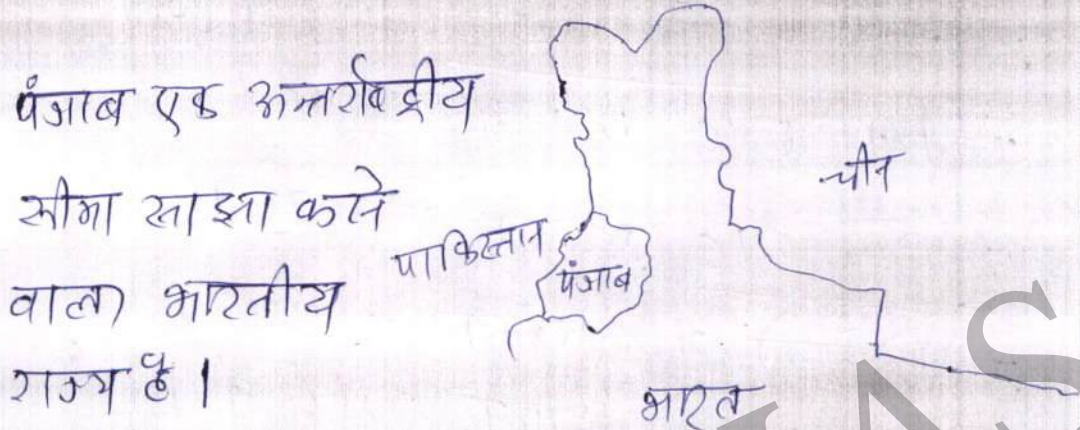 पंजाब एक अन्तर्राष्ट्रीय
सीमा साझा करने
वाला भारतीय
राज्य है।
चीन
पाकिस्तान
पंजाब
भारत
IAS